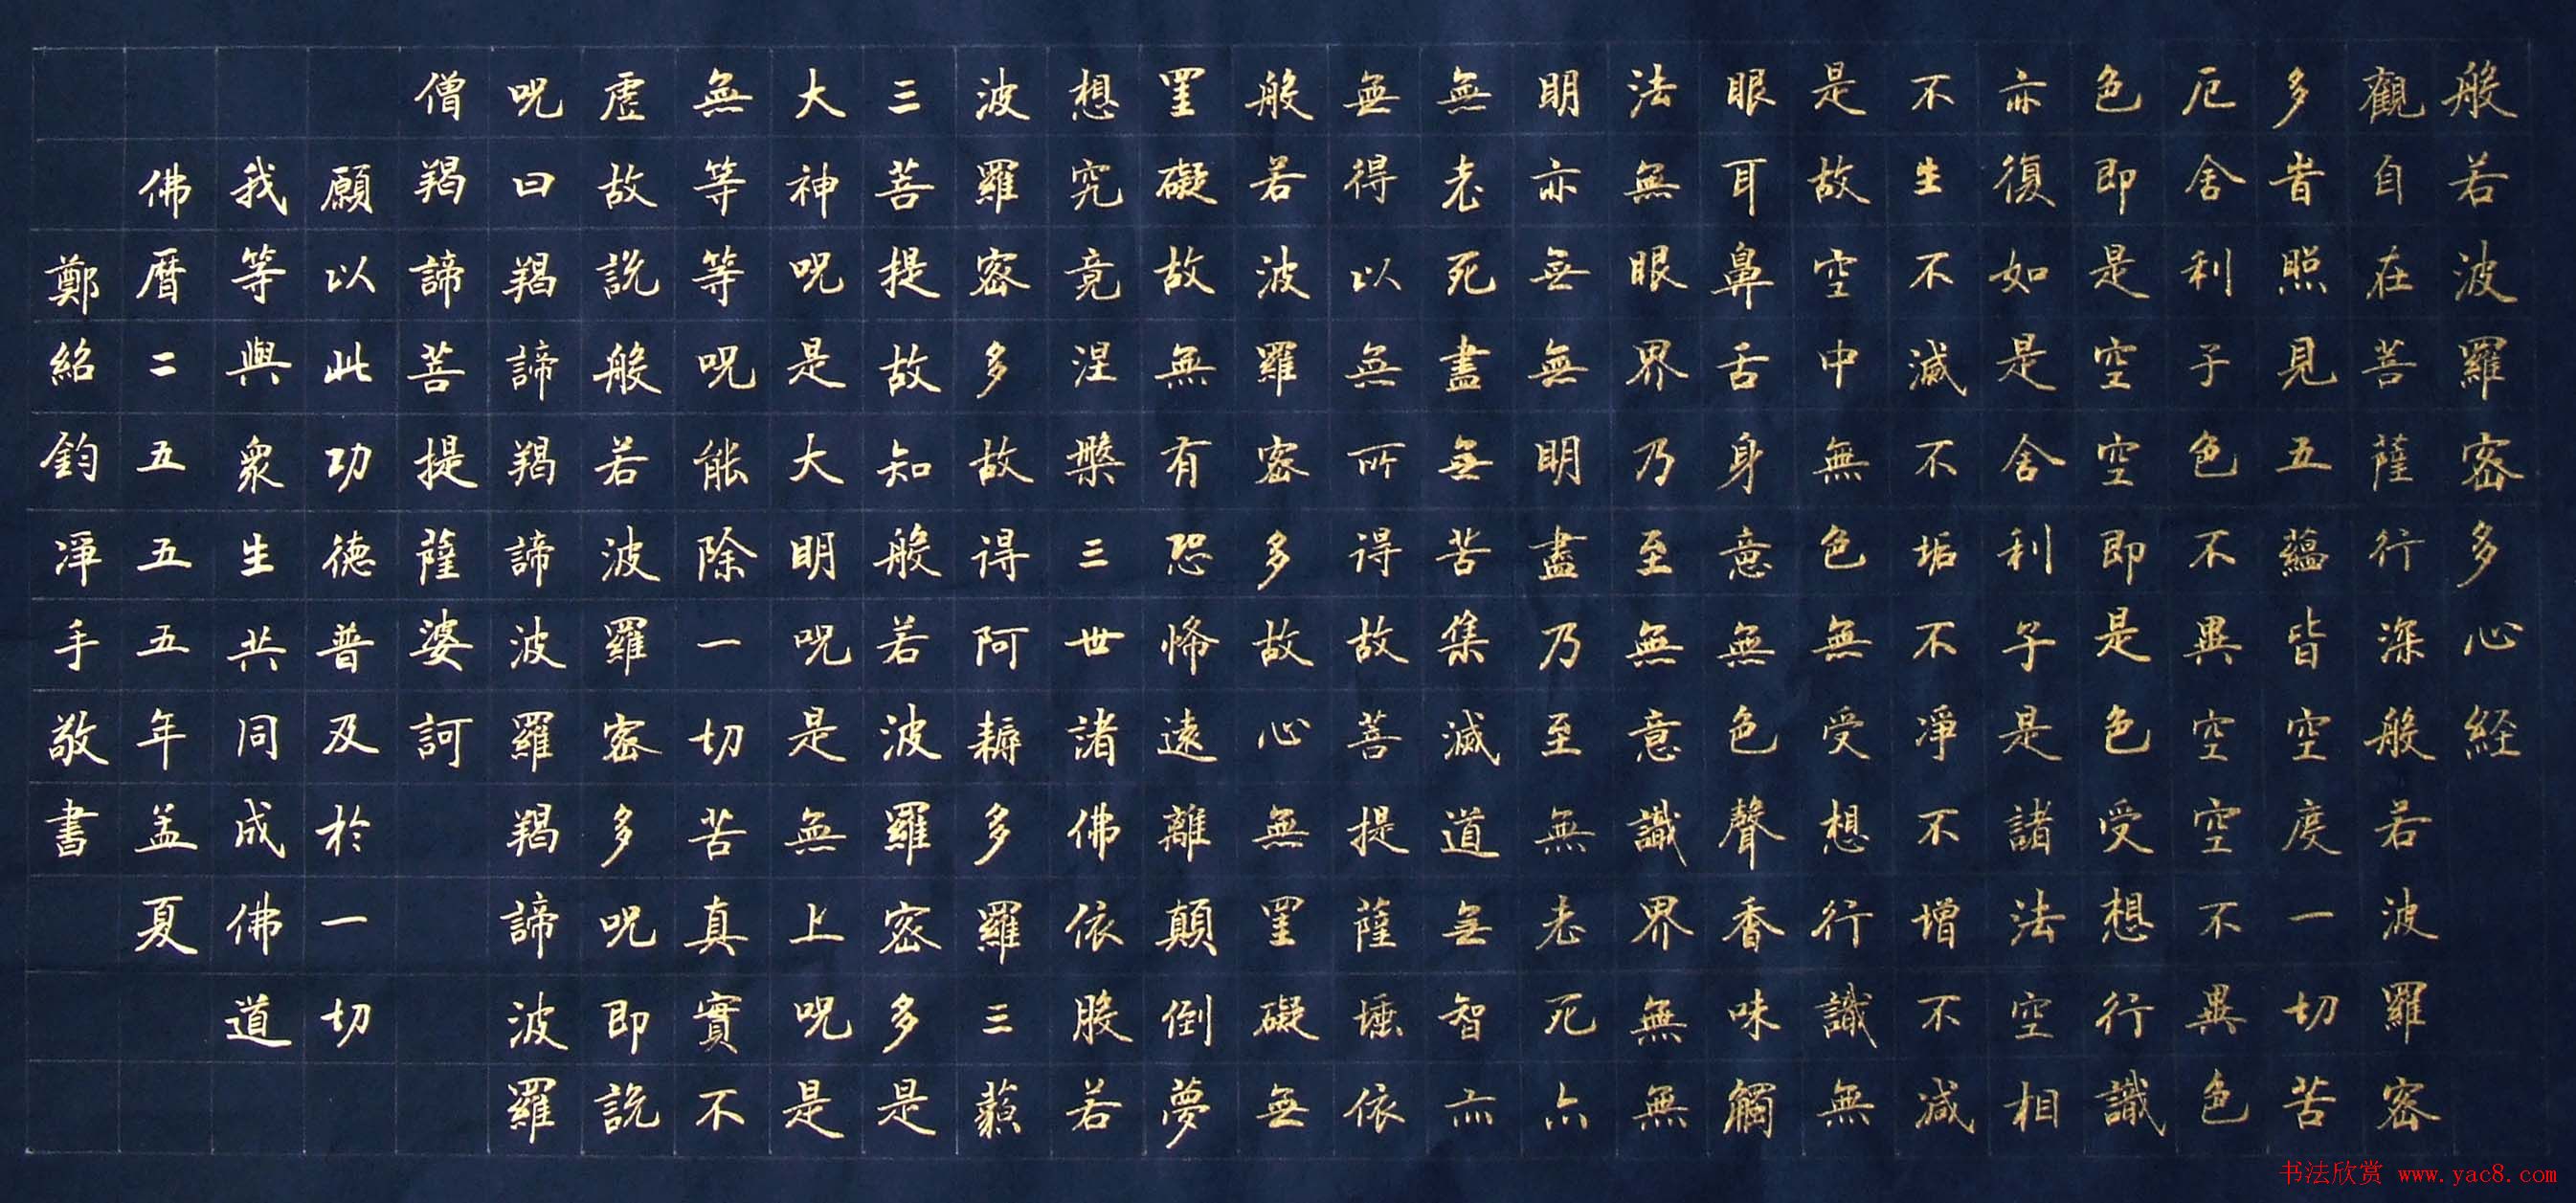 般若波羅密多心経
觀自在菩薩行深般若波羅密
多旹照見五蘊皆空度一切苦
厄舍利子色不異空空不異色
色即是空空即是色受想行識
亦復如是舍利子是諸法空相
不生不滅不垢不淨不增不减
是故空中無色無受想行識無
眼耳鼻舌身意無色聲香味觸
法無眼界乃至無意識界無無
明亦無無明盡乃至無老死亦
無老死盡無苦集滅道無智亦
無得以無所得故菩提薩埵依
般若波羅密多故心無罣礙無
罣礙故無有恐怖遠離顛倒夢
想究竟涅槃三世諸佛依般若
波羅密多故得阿耨多羅三藐
三菩提故知般若波羅密多是
大神呪是大明呪是無上呪是
無等等呪能除一切苦真實不
虛故說般若波羅密多呪即說
呪曰羯諦羯諦波羅羯諦波羅
僧羯諦菩提薩婆訶
願以此功德普及於一切
我等與衆生共同成佛道
佛曆二五五五年孟夏
鄭紹鈞淨手敬書
书法欣赏 www.yac8.com